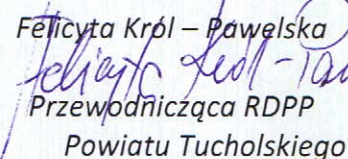 Felicyta Król – Pawelska
Felicyta Król-Paw
Przewodnicząca RDPP
Powiatu Tucholskiego